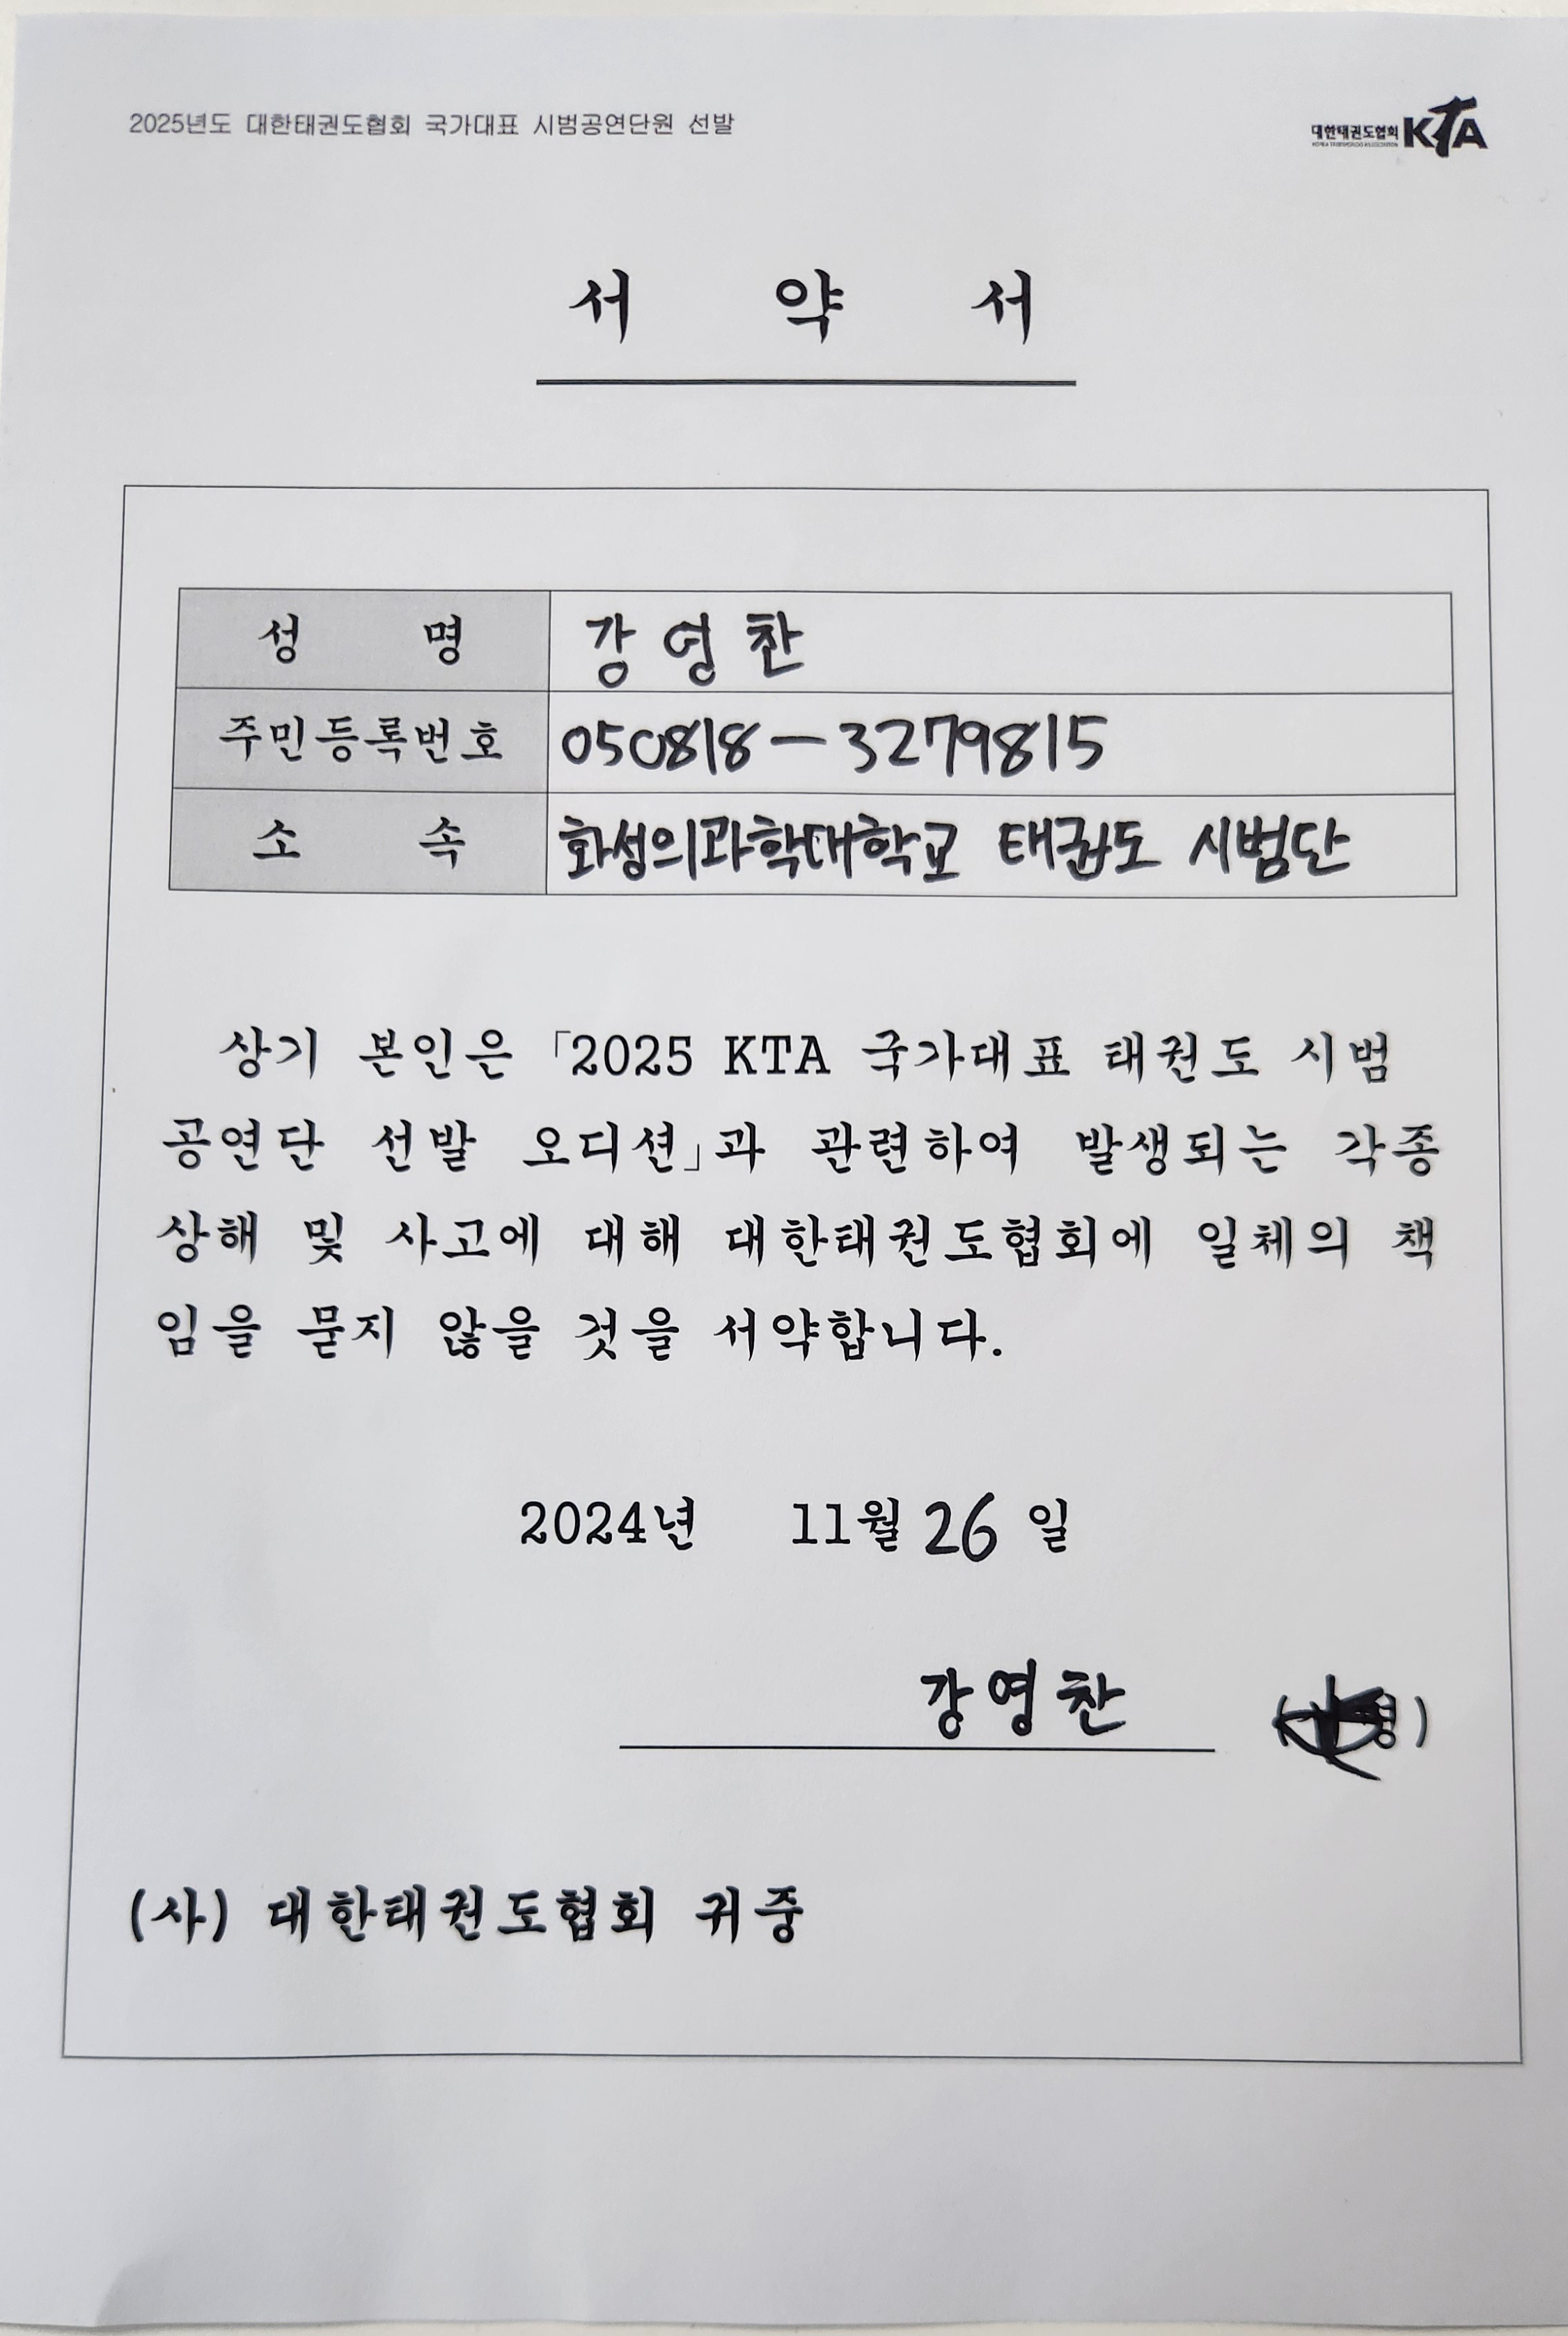 2025년도 대한태권도협회 국가대표 시범공연단원 선발
대한태권도협회 KTA
KOREA TAEKWONDO ASSOCIATION
서 약 서
성 명 강영찬
주민등록번호 050818-3279815
소 속 화성의과학대학교 태권도 시범단
상기 본인은 「2025 KTA 국가대표 태권도 시범
공연단 선발 오디션」과 관련하여 발생되는 각종
상해 및 사고에 대해 대한태권도협회에 일체의 책
임을 묻지 않을 것을 서약합니다.
2024년 11월 26 일
강영찬
(사) 대한태권도협회 귀중